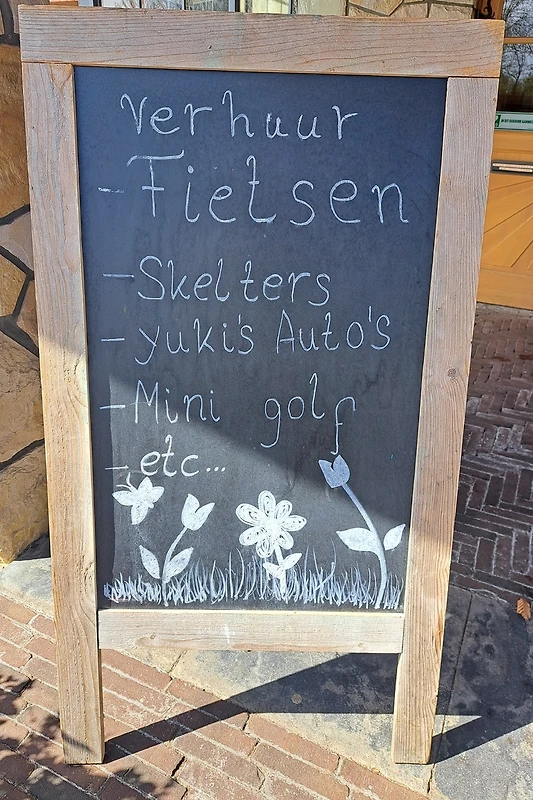 Verhuur
- Fietsen
- Skelters
- yuki's Auto's
- Mini golf
- etc...